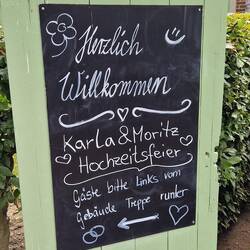 Herzlich
Willkommen
Karla & Moritz
Hochzeitsfeier
Gäste bitte Links vom
Gebäude Treppe runter